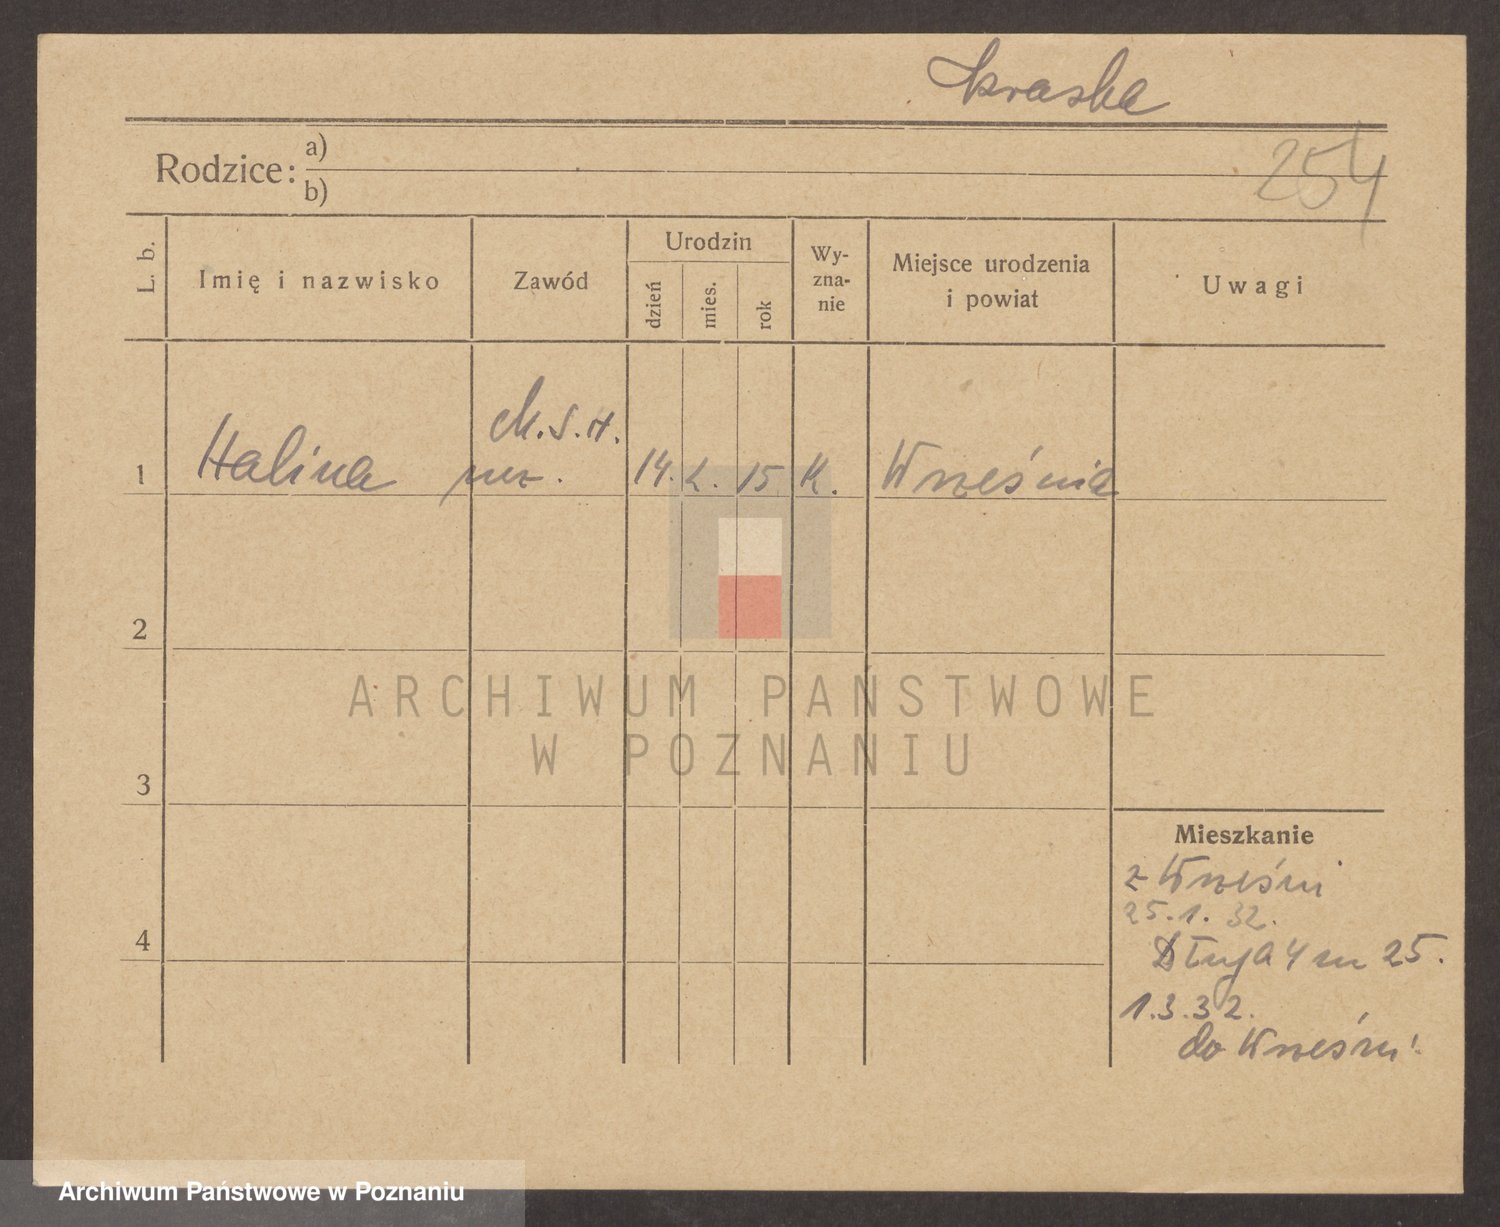 Kraska
Rodzice: a)
b)
254
L. b.
Imię i nazwisko
Zawód
Urodzin
dzień
mies.
rok
Wy-
zna-
nie
Miejsce urodzenia
i powiat
Uwagi
M.S.H.
1 Halina ucz. 14. 2. 15. K. Września
2
3
4
Mieszkanie
z Wrześni
25.1.32.
Długa 4 m 25.
1.3.32.
do Wrześni
ARCHIWUM PAŃSTWOWE
W POZNANIU
Archiwum Państwowe w Poznaniu